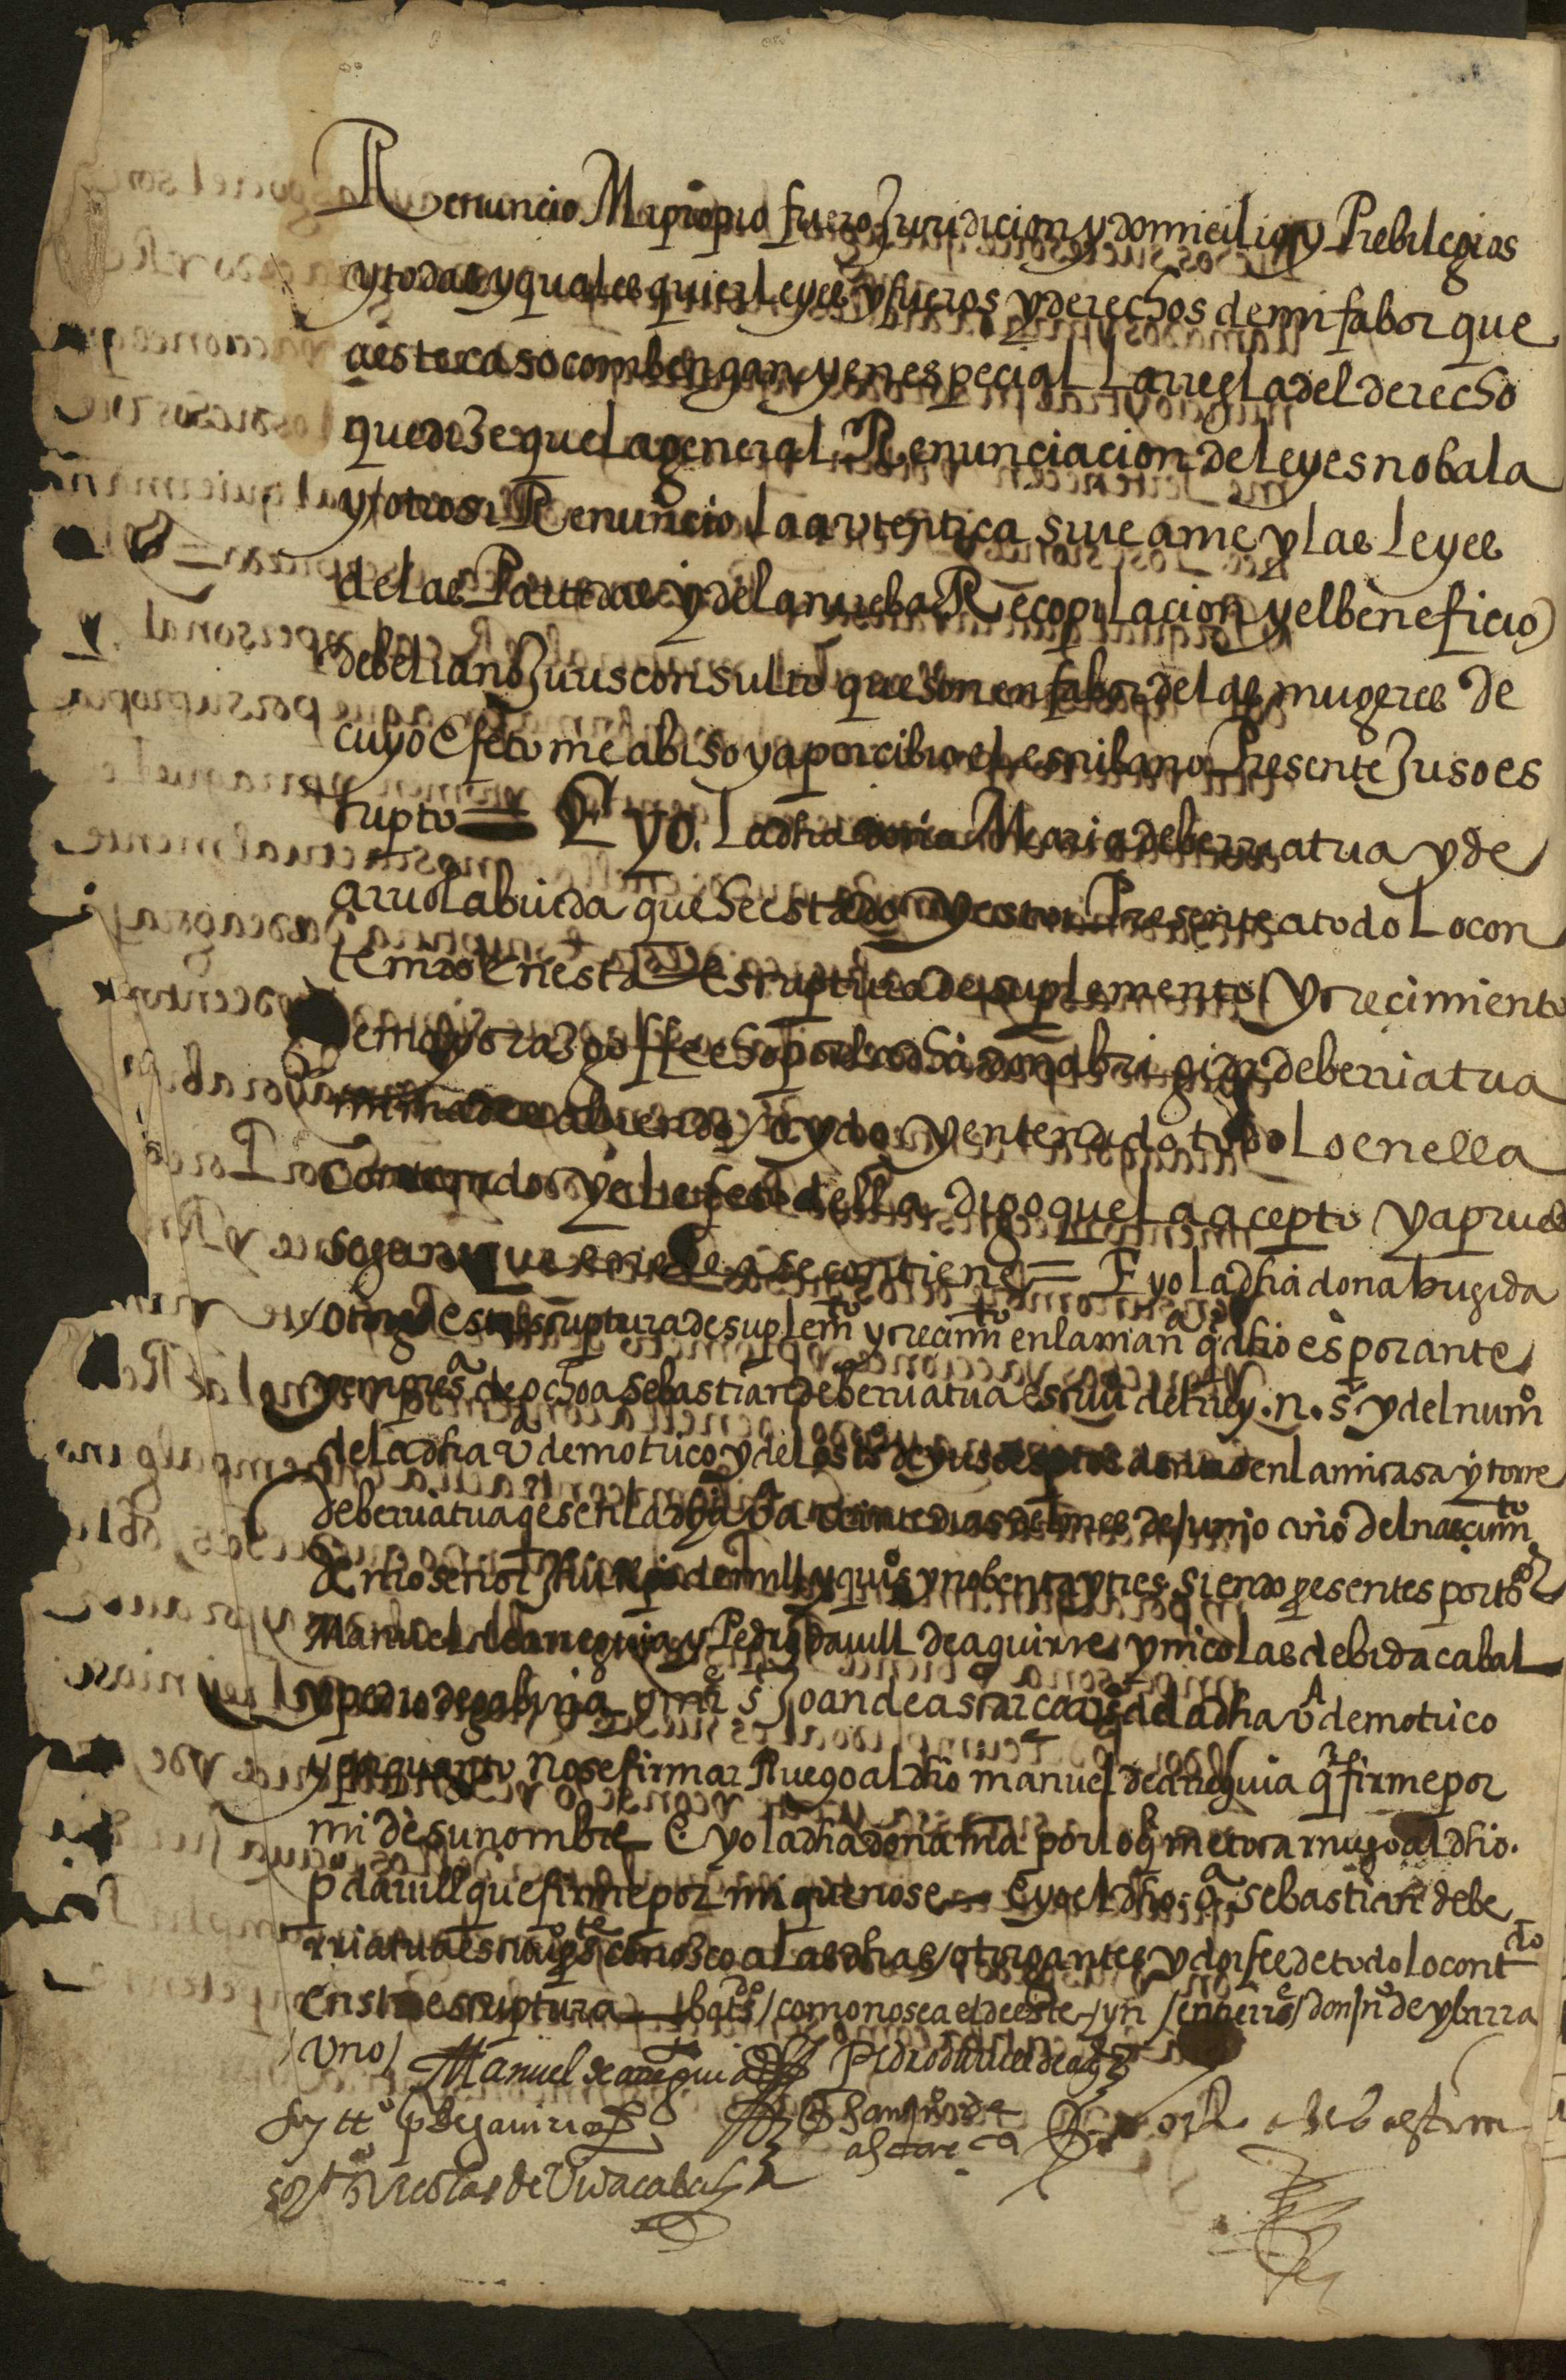 Renuncio Mi propio fuero Juridicion y domicilio y Prebilegios
y todas y quales quier leyes y fueros y derechos de mi fabor que
a este caso combengan y en especial La rregla del derecho
que dize que La general Renunciacion de leyes no bala
y otrosi Renuncio la avtentica siue a me y las Leyes
de las Partidas y de la nueba Recopilacion y el beneficio
de beliano Jurisconsulto que son en fabor de las mugeres de
cuyo efeto me abiso y apercibio el escribano Presente Juso es
cripto = E yo. La dha doña Maria de berriatua y de
arriolabirida que he estado y estoi Presente a todo Lo con
tenido en esta escriptura de suplemento y crecimiento
de mayorazgo ffecho por la dha dona brigida de berriatua
mi madre abiendo oydo y entendido todo Lo en ella
contenido y el efeto della digo que La acepto y apruebo
segun que en ella se contiene = E yo la dha dona brigida
otorgo esta escriptura de suplemto y crecimto en la manª q dho es por ante
y en presª de ochoa sebastian de berriatua escriuº del rrey . n . s y del numº
de la dha vª de motrico y de los tsº de yuso escritos en la mi casa y torre
de berriatua q es en la dha vª a veinte dias del mes de junio año del nascimto
de nro señor Jhu xpo de mill y quisº y nobenta y tres siendo presentes por tsº
Manuel de aneguia y Pedro dauill de aguirre y nicolas de bidacabal
y pedro de gabiria y mre s Joan de astarca vzº de la dha vª de motrico
y por quanto no se firmar Ruego al dho manuel de aneguia q firme por
mi de su nombre E yo la dha dona mª por lo q me toca ruego al dho.
pº dauill que firme por mi que no se = E yo el dho oª sebastian de be
rriatua escriuº pste conozco a las dhas otorgantes y doi fee de todo lo contdo
en esta escriptura / como no sea el de este / yn / entierro / don jnº de ybarra
/ vno /
Manuel de aneguia Pedro dauill de agre
Soy ttº pº de gauiria Joan de
astarca Ochoa Sebastian
Soy tº Nicolas de Vidacabal